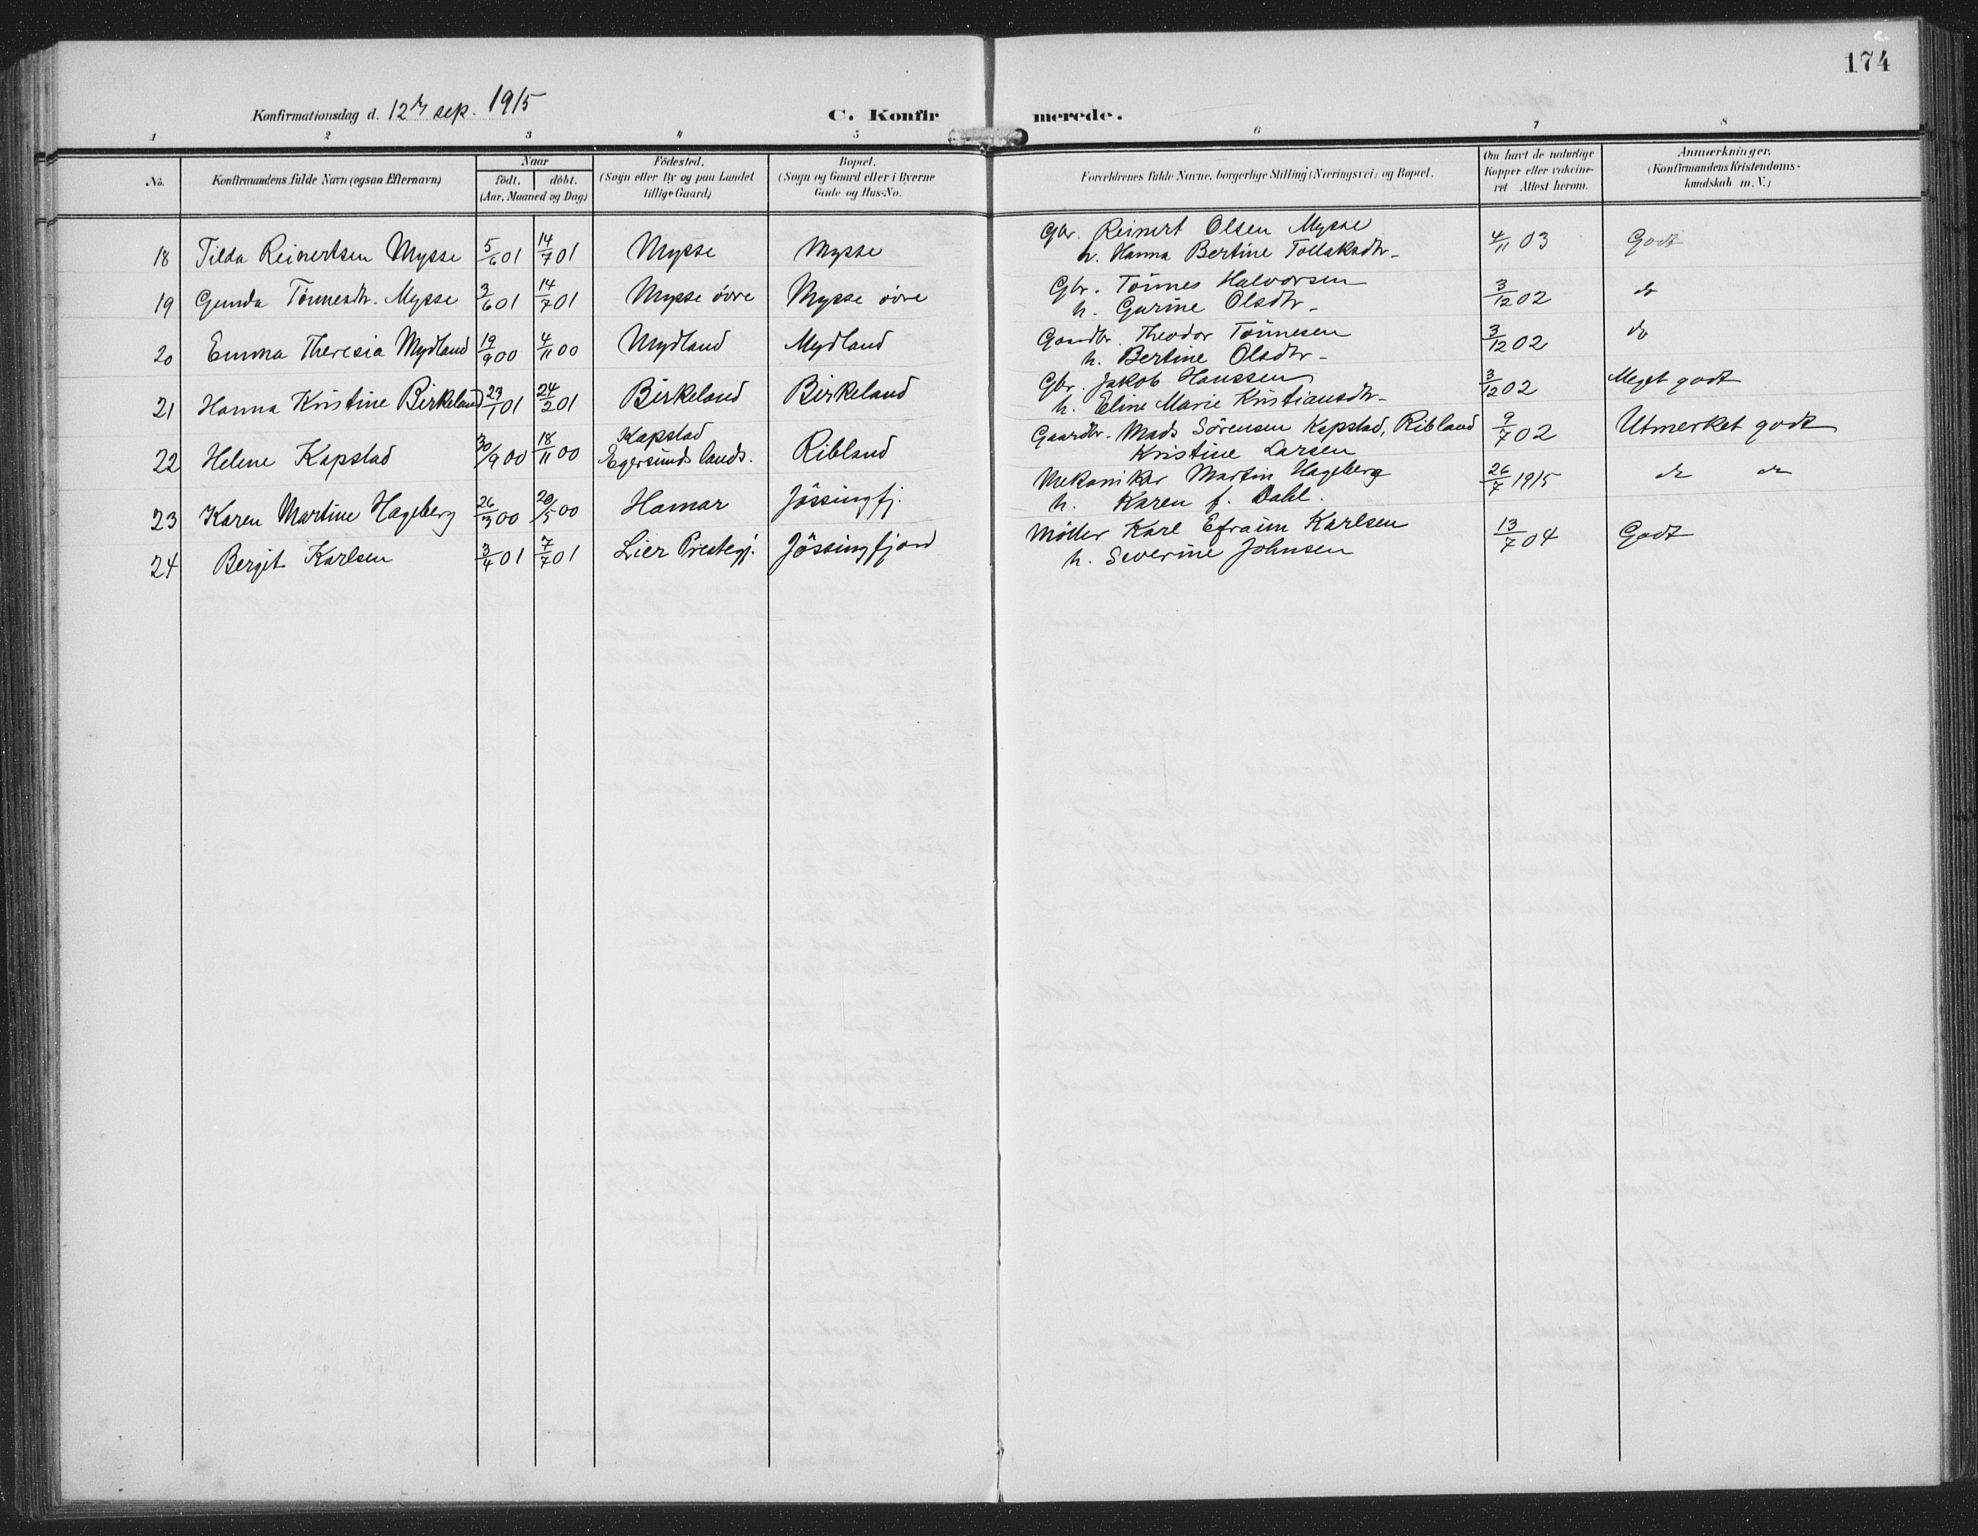 174
Konfirmationsdag d. 12te sep. 1915
C. Konfirmerede.
1 2 3 4 5 6 7 8
No. | Konfirmandens fulde Navn (ogsaa Efternavn) | Naar födt. döbt. (Aar, Maaned og Dag) | Födested. (Sogn eller By og paa Landet tillige Gaard) | Bopæl. (Sogn og Gaard eller i Byerne Gade og Hus-No. | Forældrenes fulde Navne, borgerlige Stilling (Næringsvei) og Bopæl. | Om havt de naturlige Kopper eller vakcineret Attest herom. | Anmærkninger. (Konfirmandens Kristendomskundskab m. V.)
18 | Tilda Reinertsen Mysse | 5/6 01 | 14/7 01 | Mysse | Mysse | Gbr. Reinert Olsen Mysse h. Hanna Bertine Tollaksdtr. | 4/11 03 | Godt
19 | Gunda Tönnesdtr. Mysse | 3/6 01 | 14/7 01 | Mysse övre | Mysse övre | Gbr. Tönnes Halvorsen h. Gurine Olsdtr. | 3/12 02 | do
20 | Emma Theresia Mydland | 19/9 00 | 4/11 00 | Mydland | Mydland | Gaardbr. Theodor Tönnesen h. Bertine Olsdtr. | 3/12 02 | do
21 | Hanna Kristine Birkeland | 23/1 01 | 24/2 01 | Birkeland | Birkeland | Gbr. Jakob Hanssen h. Eline Marie Kristiansdtr. | 3/12 02 | Meget godt
22 | Helene Kapstad | 30/9 00 | 18/11 00 | Kapstad Egersunds lands. | Ribland | Gaardbr. Mads Sörensen Kapstad, Ribland Kristine Larsen | 9/7 02 | Utmerket godt
23 | Karen Martine Hageberg | 26/3 00 | 20/5 00 | Hamar | Jössingfj. | Mekaniker Martin Hageberg h. Karen f. Dahl. | 26/7 1915 | do do
24 | Bergit Karlsen | 3/4 01 | 7/7 01 | Lier Prestegj. | Jössingfjord | Möller Karl Efraim Karlsen h. Severine Johnsen | 13/7 04 | Godt